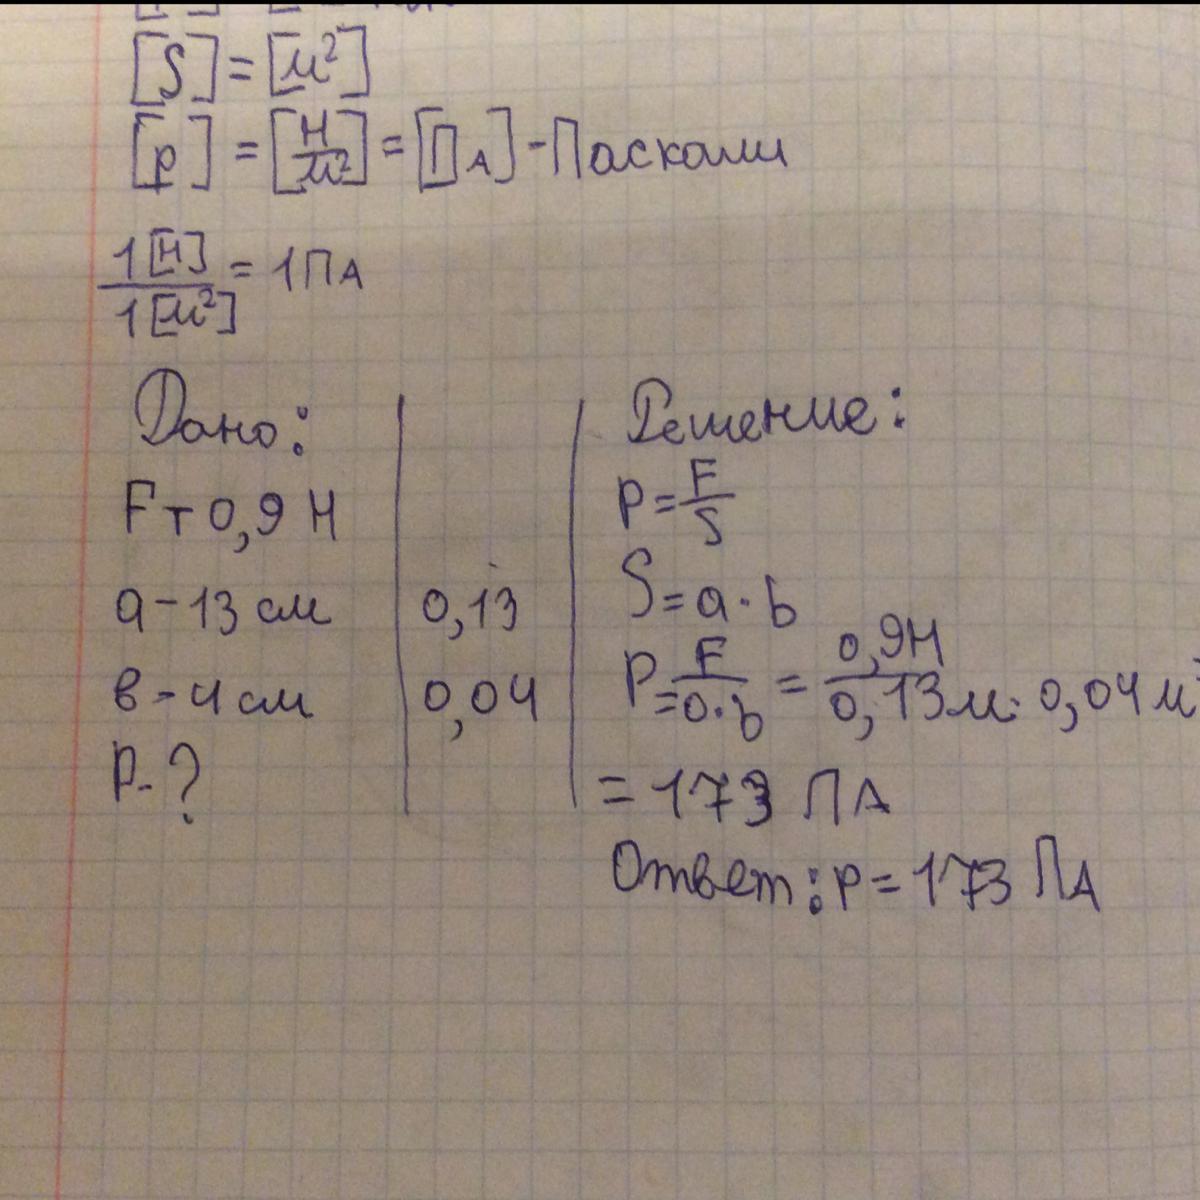 [S] = [м²]
[p] = [Н/м²] = [ПА] - Паскали
1[Н]/1[м²] = 1ПА
Дано:
Fт 0,9 Н
а - 13 см 0,13
в - 4 см 0,04
P - ?
Решение:
P = F/S
S = a · b
P = F/a·b = 0,9Н/0,13м · 0,04м
= 173 ПА
Ответ: p = 173 ПА